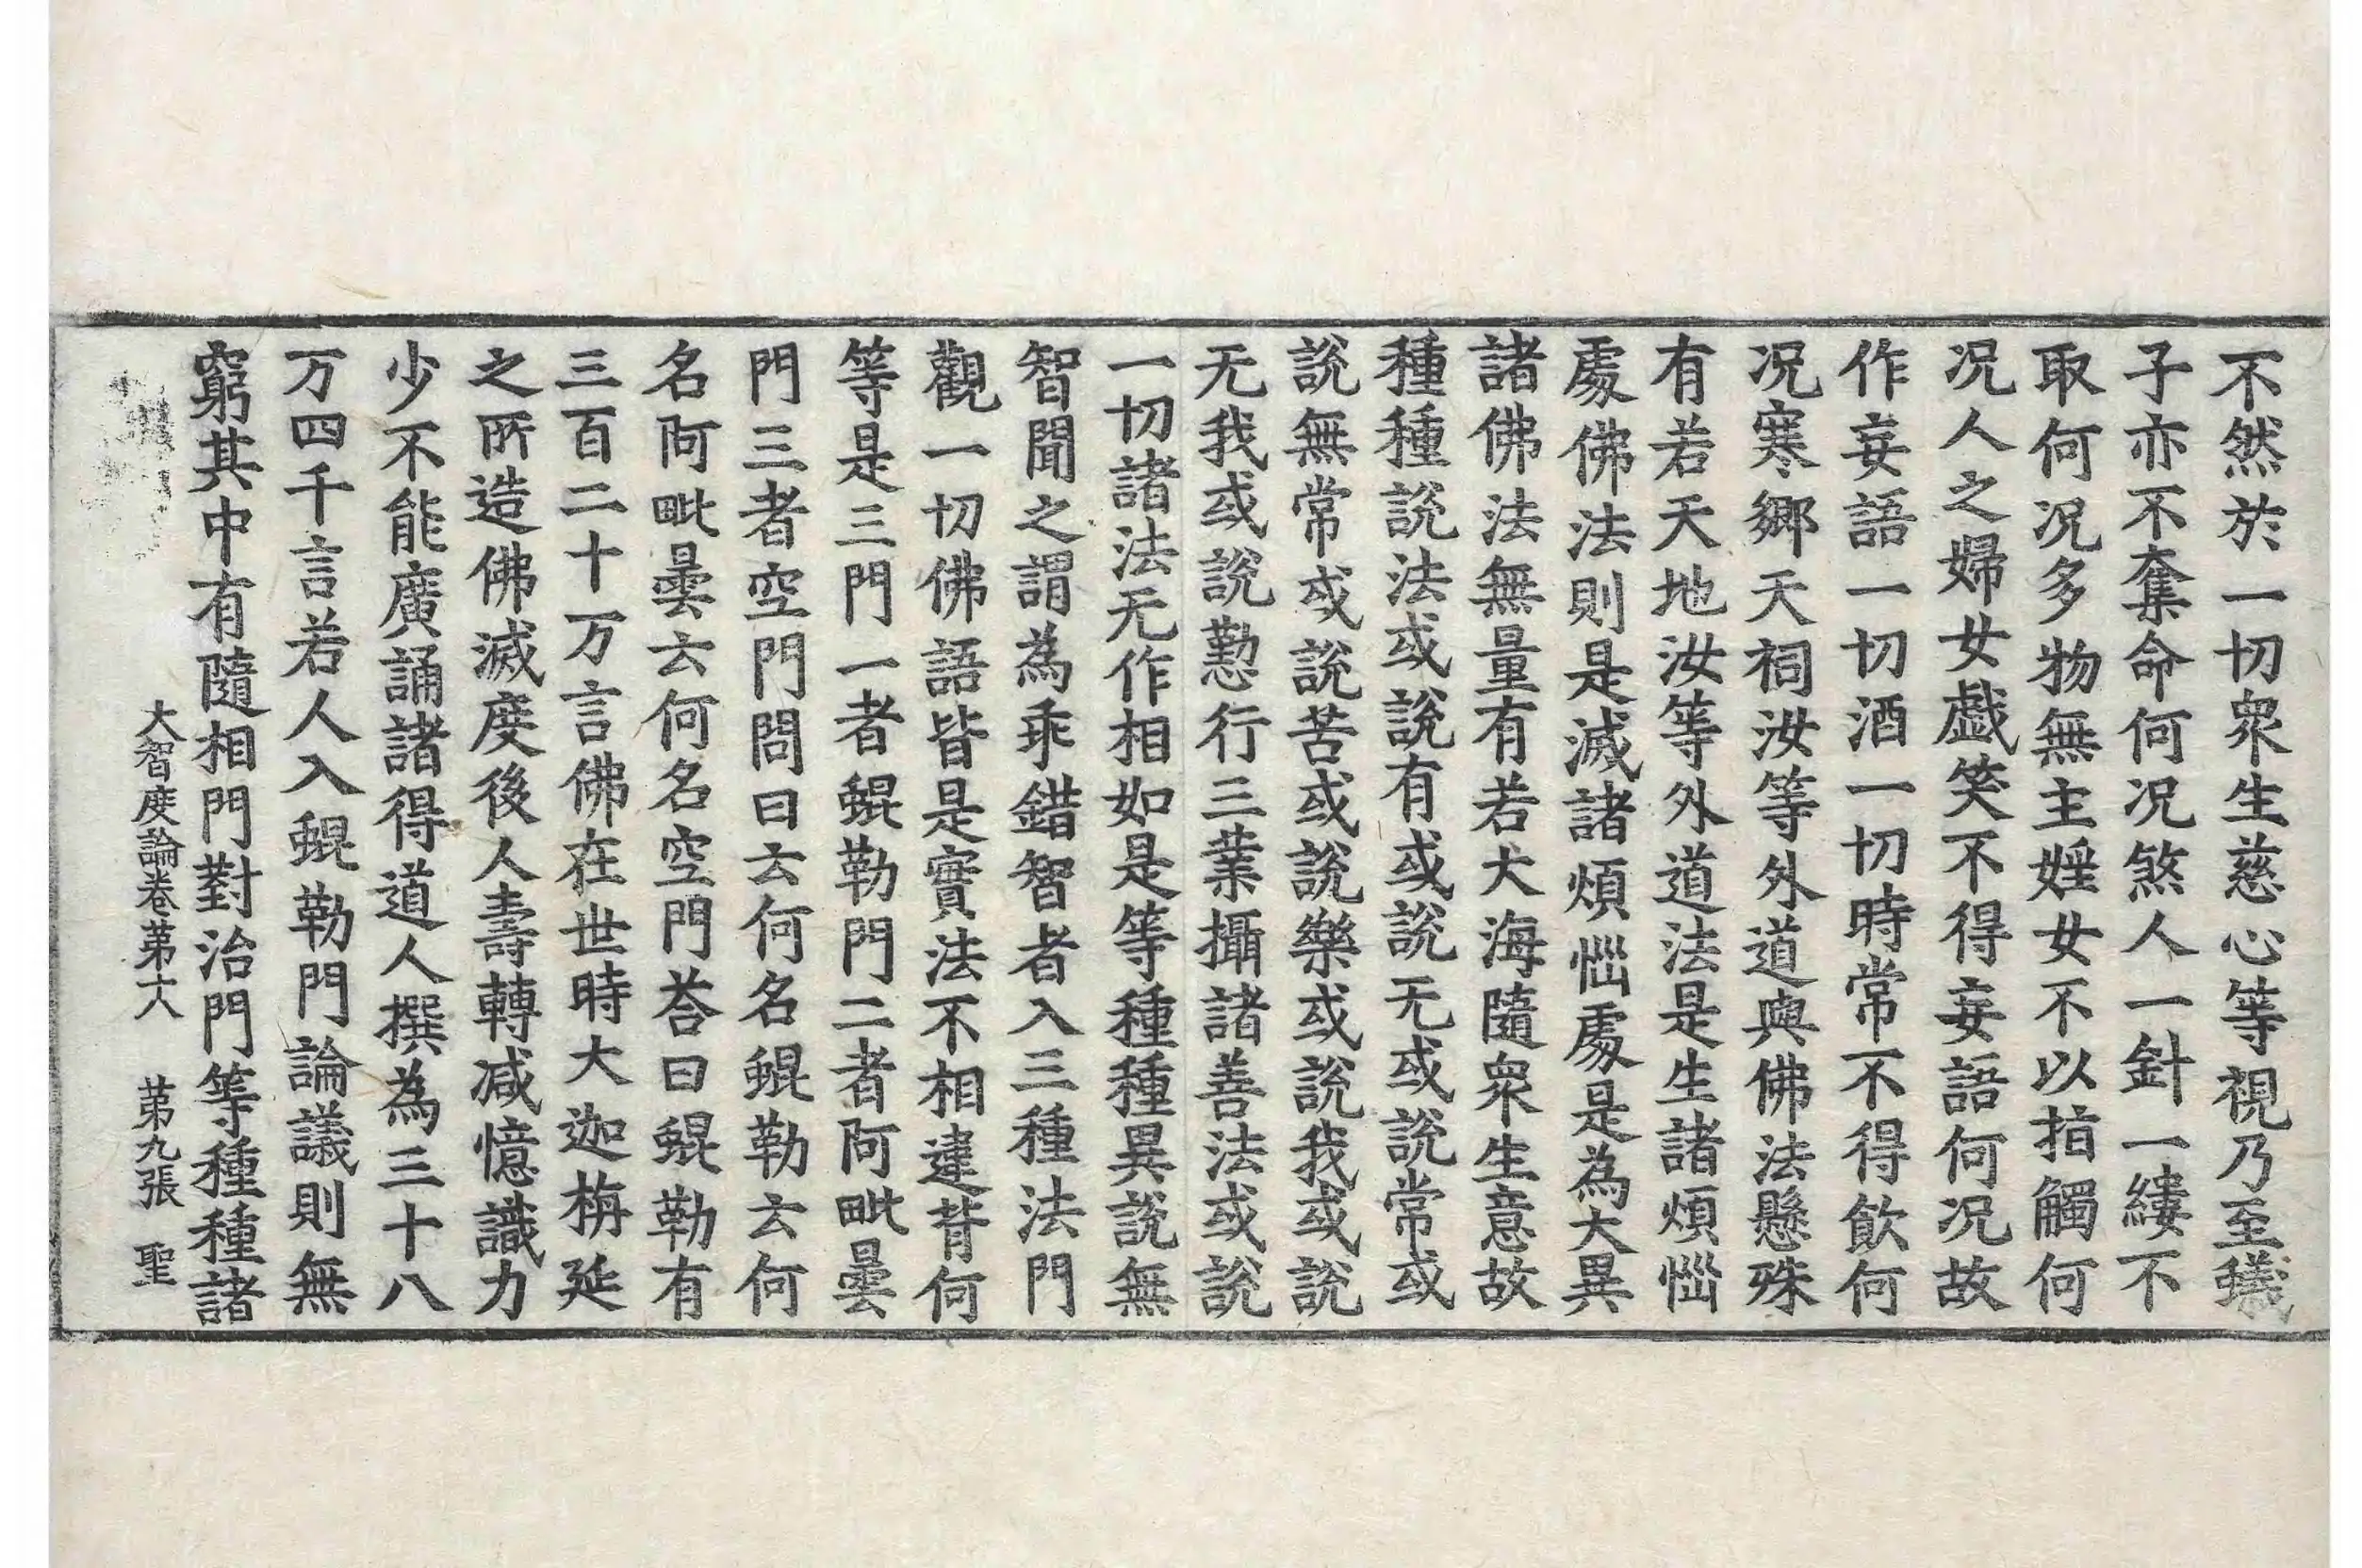 不然於一切衆生慈心等視乃至蟻
子亦不奪命何况煞人一針一縷不
取何况多物無主婬女不以指觸何
况人之婦女戱笑不得妄語何况故
作妄語一切酒一切時常不得飮何
况寒鄉天祠汝等外道與佛法懸殊
有若天地汝等外道法是生諸煩惱
處佛法則是滅諸煩惱處是為大異
諸佛法無量有若大海隨衆生意故
種種說法或說有或說无或說常或
說無常或說苦或說樂或說我或說
无我或說懃行三業攝諸善法或說
一切諸法无作相如是等種種異說無
智聞之謂為乖錯智者入三種法門
觀一切佛語皆是實法不相違背何
等是三門一者蜫勒門二者阿毗曇
門三者空門問曰云何名蜫勒云何
名阿毗曇云何名空門荅曰蜫勒有
三百二十万言佛在世時大迦栴延
之所造佛滅度後人壽轉减憶識力
少不能廣誦諸得道人撰為三十八
万四千言若人入蜫勒門論議則無
窮其中有隨相門對治門等種種諸
大智度論卷第十八 第九張 聖